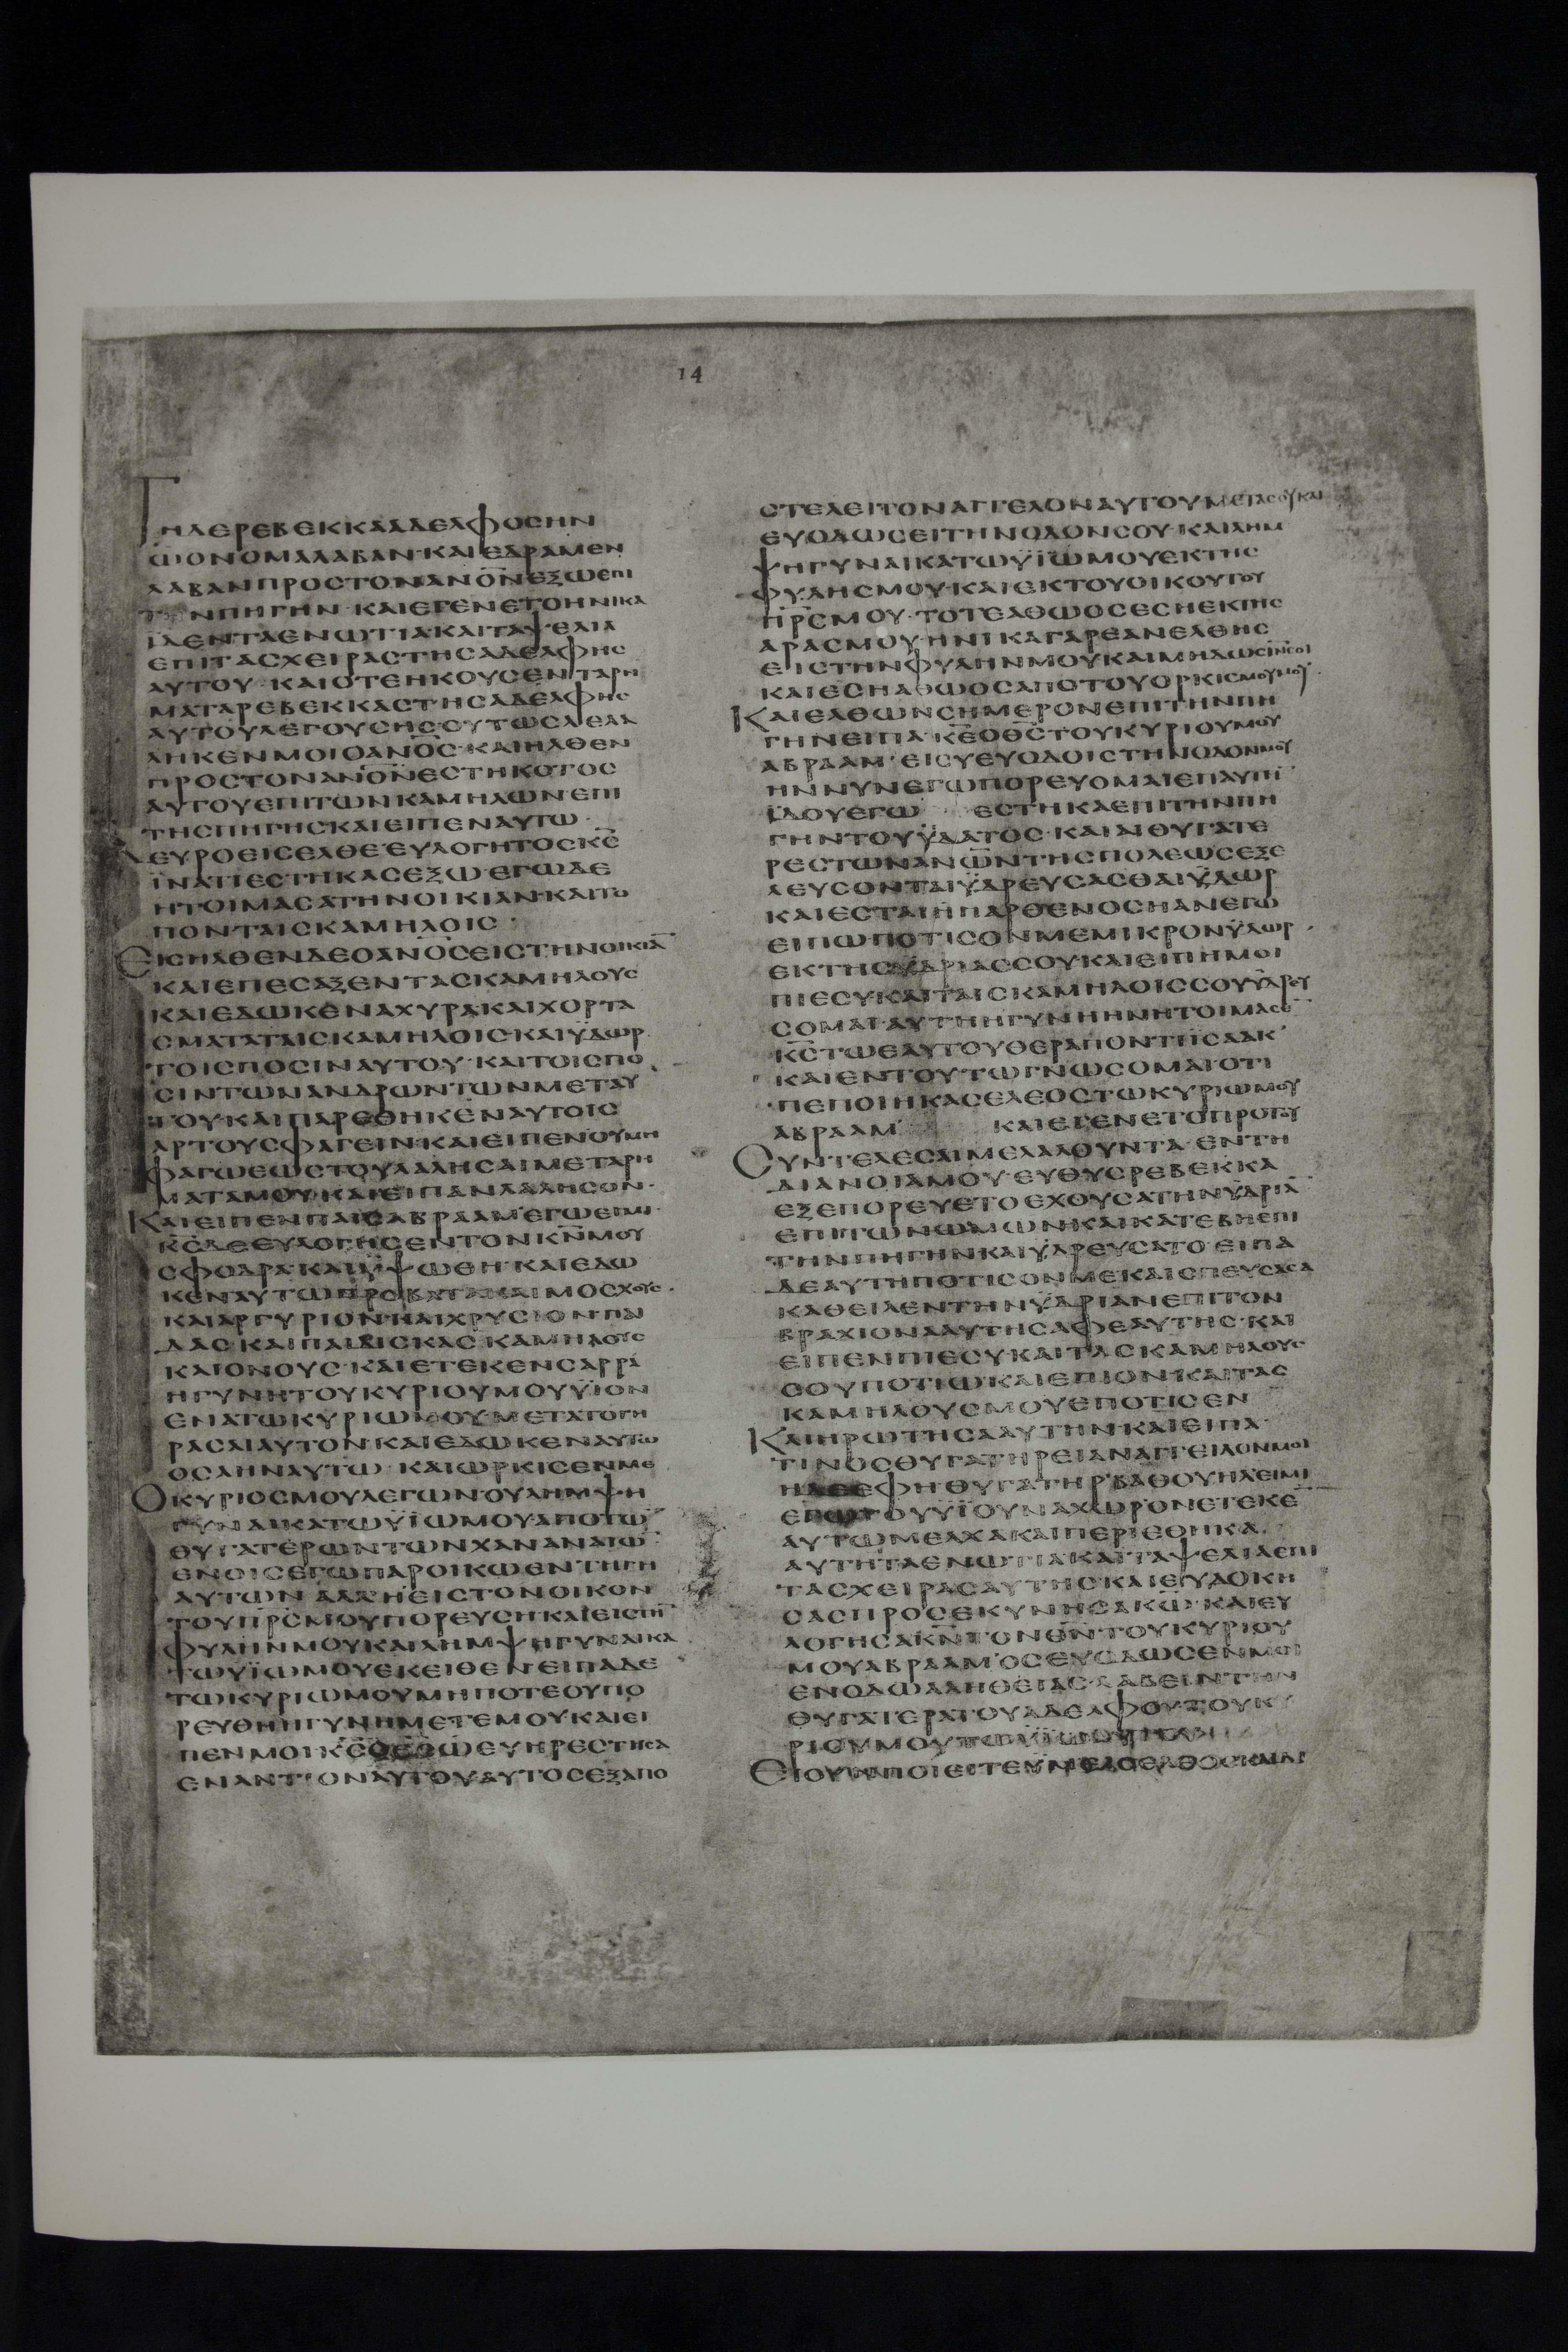 14
ΤΗΔΕΡΕΒΕΚΚΑΑΔΕΛΦΟΣΗΝ
ΩΟΝΟΜΑΛΑΒΑΝ·ΚΑΙΕΔΡΑΜΕΝ
ΛΑΒΑΝΠΡΟΣΤΟΝΑΝΟ̅Ν̅ΕΞΩΕΠΙ
ΝΠΗΓΗΝ·ΚΑΙΕΓΕΝΕΤΟΗΝΙΚΑ
ΙΔΕΝΤΑΕΝΩΤΙΑ·ΚΑΙΤΑΨΕΛΙΑ
ΕΠΙΤΑΣΧΕΙΡΑΣΤΗΣΑΔΕΛΦΗΣ
ΑΥΤΟΥ·ΚΑΙΟΤΕΗΚΟΥΣΕΝΤΑΡΗ
ΜΑΤΑΡΕΒΕΚΚΑΣΤΗΣΑΔΕΛΦΗΣ
ΑΥΤΟΥΛΕΓΟΥΣΗΣΟΥΤΩΣΛΕΛΑ
ΛΗΚΕΝΜΟΙΟΑΝΟ̅Σ̅·ΚΑΙΗΛΘΕΝ
ΠΡΟΣΤΟΝΑΝΟ̅Ν̅ΕΣΤΗΚΟΤΟΣ
ΑΥΤΟΥΕΠΙΤΩΝΚΑΜΗΛΩΝΕΠΙ
ΤΗΣΠΗΓΗΣΚΑΙΕΙΠΕΝΑΥΤΩ·
ΔΕΥΡΟΕΙΣΕΛΘΕΕΥΛΟΓΗΤΟΣΚ̅Σ̅
ΪΝΑΤΙΕΣΤΗΚΑΣΕΞΩ·ΕΓΩΔΕ
ΗΤΟΙΜΑΣΑΤΗΝΟΙΚΙΑΝ·ΚΑΙΤΟ
ΠΟΝΤΑΙΣΚΑΜΗΛΟΙΣ·
ΕΙΣΗΛΘΕΝΔΕΟΑΝΟ̅Σ̅ΕΙΣΤΗΝΟΙΚΙΑ̅
ΚΑΙΕΠΕΣΑΞΕΝΤΑΣΚΑΜΗΛΟΥΣ
ΚΑΙΕΔΩΚΕΝΑΧΥΡΑΚΑΙΧΟΡΤΑ
ΣΜΑΤΑΤΑΙΣΚΑΜΗΛΟΙΣ·ΚΑΙΫΔΩΡ
ΤΟΙΣΠΟΣΙΝΑΥΤΟΥ·ΚΑΙΤΟΙΣΠΟ
ΣΙΝΤΩΝΑΝΔΡΩΝΤΩΝΜΕΤΑΥ
ΤΟΥΚΑΙΠΑΡΕΘΗΚΕΝΑΥΤΟΙΣ
ΑΡΤΟΥΣΦΑΓΕΙΝ·ΚΑΙΕΙΠΕΝΟΥΜΗ
ΦΑΓΩΕΩΣΤΟΥΛΑΛΗΣΑΙΜΕΤΑΡΗ
ΜΑΤΑΜΟΥΚΑΙΕΙΠΑΝΛΑΛΗΣΟΝ·
ΚΑΙΕΙΠΕΝΠΑΙΣΑΒΡΑΑΜΕΓΩΕΙΜΙ·
Κ̅Σ̅ΔΕΕΥΛΟΓΗΣΕΝΤΟΝΚ̅Ν̅ΜΟΥ
ΣΦΟΔΡΑ·ΚΑΙΫΨΩΘΗ·ΚΑΙΕΔΩ
ΚΕΝΑΥΤΩΠΡΟΒΑΤΑΚΑΙΜΟΣΧΟΥΣ·
ΚΑΙΑΡΓΥΡΙΟΝΚΑΙΧΡΥΣΙΟΝΠΑΙ
ΔΑΣΚΑΙΠΑΙΔΙΣΚΑΣΚΑΜΗΛΟΥΣ
ΚΑΙΟΝΟΥΣ·ΚΑΙΕΤΕΚΕΝΣΑΡΡΑ
ΗΓΥΝΗΤΟΥΚΥΡΙΟΥΜΟΥΫΙΟΝ
ΕΝΑΤΩΚΥΡΙΩΜΟΥΜΕΤΑΤΟΓΗ
ΡΑΣΑΙΑΥΤΟΝ·ΚΑΙΕΔΩΚΕΝΑΥΤΩ
ΟΣΑΗΝΑΥΤΩ·ΚΑΙΩΡΚΙΣΕΝΜΕ
ΟΚΥΡΙΟΣΜΟΥΛΕΓΩΝΟΥΛΗΜΨΗ
ΓΥΝΑΙΚΑΤΩΫΪΩΜΟΥΑΠΟΤΩ̅
ΘΥΓΑΤΕΡΩΝΤΩΝΧΑΝΑΝΑΙΩ̅
ΕΝΟΙΣΕΓΩΠΑΡΟΙΚΩΕΝΤΗΓΗ
ΑΥΤΩΝ·ΑΛΛΗΕΙΣΤΟΝΟΙΚΟΝ
ΤΟΥΠ̅Ρ̅Σ̅ΜΟΥΠΟΡΕΥΣΗΚΑΙΕΙΣΤΗ̅
ΦΥΛΗΝΜΟΥΚΑΙΛΗΜΨΗΓΥΝΑΙΚΑ
ΤΩΫΪΩΜΟΥΕΚΕΙΘΕΝΕΙΠΑΔΕ
ΤΩΚΥΡΙΩΜΟΥΜΗΠΟΤΕΟΥΠΟ
ΡΕΥΘΗΗΓΥΝΗΜΕΤΕΜΟΥΚΑΙΕΙ
ΠΕΝΜΟΙΚ̅Σ̅ΟΘ̅Σ̅ΩΕΥΗΡΕΣΤΗΣΑ
ΕΝΑΝΤΙΟΝΑΥΤΟΥΑΥΤΟΣΕΞΑΠΟ
ΣΤΕΛΕΙΤΟΝΑΓΓΕΛΟΝΑΥΤΟΥΜΕΤΑΣΟΥΚΑΙ
ΕΥΟΔΩΣΕΙΤΗΝΟΔΟΝΣΟΥ·ΚΑΙΛΗΜ
ΨΗΓΥΝΑΙΚΑΤΩΫΪΩΜΟΥΕΚΤΗΣ
ΦΥΛΗΣΜΟΥ·ΚΑΙΕΚΤΟΥΟΙΚΟΥΤΟΥ
Π̅Ρ̅Σ̅ΜΟΥ·ΤΟΤΕΑΘΩΟΣΕΣΗΕΚΤΗΣ
ΑΡΑΣΜΟΥ·ΗΝΙΚΑΓΑΡΕΑΝΕΛΘΗΣ
ΕΙΣΤΗΝΦΥΛΗΝΜΟΥΚΑΙΜΗΔΩΣΙΝΣΟΙ
ΚΑΙΕΣΗΑΘΩΟΣΑΠΟΤΟΥΟΡΚΙΣΜΟΥΜΟΥ
ΚΑΙΕΛΘΩΝΣΗΜΕΡΟΝΕΠΙΤΗΝΠΗ
ΓΗΝΕΙΠΑ·Κ̅Ε̅ΟΘ̅Σ̅ΤΟΥΚΥΡΙΟΥΜΟΥ
ΑΒΡΑΑΜ·ΕΙΣΥΕΥΟΔΟΙΣΤΗΝΟΔΟΝΜΟΥ
ΗΝΝΥΝΕΓΩΠΟΡΕΥΟΜΑΙΕΠΑΥΤΗ̅
ΪΔΟΥΕΓΩ ΕΣΤΗΚΑΕΠΙΤΗΝΠΗ
ΓΗΝΤΟΥΫΔΑΤΟΣ·ΚΑΙΑΙΘΥΓΑΤΕ
ΡΕΣΤΩΝΑΝΩ̅Ν̅ΤΗΣΠΟΛΕΩΣΕΞΕ
ΛΕΥΣΟΝΤΑΙΫΔΡΕΥΣΑΣΘΑΙΫΔΩΡ
ΚΑΙΕΣΤΑΙΗΠΑΡΘΕΝΟΣΗΑΝΕΓΩ
ΕΙΠΩΠΟΤΙΣΟΝΜΕΜΙΚΡΟΝΫΔΩΡ·
ΕΚΤΗΣΫΔΡΙΑΣΣΟΥΚΑΙΕΙΠΗΜΟΙ
ΠΙΕΣΥΚΑΙΤΑΙΣΚΑΜΗΛΟΙΣΣΟΥΫΔΡΕΥ
ΣΟΜΑΙ·ΑΥΤΗΗΓΥΝΗΗΝΗΤΟΙΜΑΣΕ̅
Κ̅Σ̅ΤΩΕΑΥΤΟΥΘΕΡΑΠΟΝΤΙΪΣΑΑΚ
ΚΑΙΕΝΤΟΥΤΩΓΝΩΣΟΜΑΙΟΤΙ
ΠΕΠΟΙΗΚΑΣΕΛΕΟΣΤΩΚΥΡΙΩΜΟΥ
ΑΒΡΑΑΜ ΚΑΙΕΓΕΝΕΤΟΠΡΟΤΟΥ
ΣΥΝΤΕΛΕΣΑΙΜΕΛΑΛΟΥΝΤΑ·ΕΝΤΗ
ΔΙΑΝΟΙΑΜΟΥ·ΕΥΘΥΣΡΕΒΕΚΚΑ
ΕΞΕΠΟΡΕΥΕΤΟΕΧΟΥΣΑΤΗΝΫΔΡΙΑ̅
ΕΠΙΤΩΝΩΜΩΝ·ΚΑΙΚΑΤΕΒΗΕΠΙ
ΤΗΝΠΗΓΗΝΚΑΙΫΔΡΕΥΣΑΤΟ·ΕΙΠΑ
ΔΕΑΥΤΗΠΟΤΙΣΟΝΜΕΚΑΙΣΠΕΥΣΑΣΑ
ΚΑΘΕΙΛΕΝΤΗΝΫΔΡΙΑΝΕΠΙΤΟΝ
ΒΡΑΧΙΟΝΑΑΥΤΗΣΑΦΕΑΥΤΗΣ·ΚΑΙ
ΕΙΠΕΝΠΙΕΣΥΚΑΙΤΑΣΚΑΜΗΛΟΥΣ
ΣΟΥΠΟΤΙΩ·ΚΑΙΕΠΙΟΝ·ΚΑΙΤΑΣ
ΚΑΜΗΛΟΥΣΜΟΥΕΠΟΤΙΣΕΝ
ΚΑΙΗΡΩΤΗΣΑΑΥΤΗΝΚΑΙΕΙΠΑ·
ΤΙΝΟΣΘΥΓΑΤΗΡΕΙΑΝΑΓΓΕΙΛΟΝΜΟΙ
ΗΔΕΕΦΗΘΥΓΑΤΗΡΒΑΘΟΥΗΛΕΙΜΙ
ΤΟΥΫΪΟΥΝΑΧΩΡΟΝΕΤΕΚΕ̅
ΑΥΤΩΜΕΛΧΑΚΑΙΠΕΡΙΕΘΗΚΑ
ΑΥΤΗΤΑΕΝΩΤΙΑΚΑΙΤΑΨΕΛΙΑΕΠΙ
ΤΑΣΧΕΙΡΑΣΑΥΤΗΣΚΑΙΕΥΔΟΚΗ
ΣΑΣΠΡΟΣΕΚΥΝΗΣΑΚ̅Ω̅·ΚΑΙΕΥ
ΛΟΓΗΣΑΚ̅Ν̅ΤΟΝΘ̅Ν̅ΤΟΥΚΥΡΙΟΥ
ΜΟΥΑΒΡΑΑΜΟΣΕΥΟΔΩΣΕΝΜΟΙ
ΕΝΟΔΩΑΛΗΘΕΙΑΣ·ΛΑΒΕΙΝΤΗΝ
ΘΥΓΑΤΕΡΑΤΟΥΑΔΕΛΦΟΥΤΟΥΚΥ
ΡΙΟΥΜΟΥΤΩΫΪΩ
ΕΙΟΥΝΠΟΙΕΙΤΕΫΜΕΙΣΕΛΕΟΣΚΑΙ